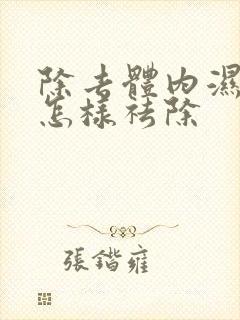 除去體內濕
怎樣祛除
張鍇雍